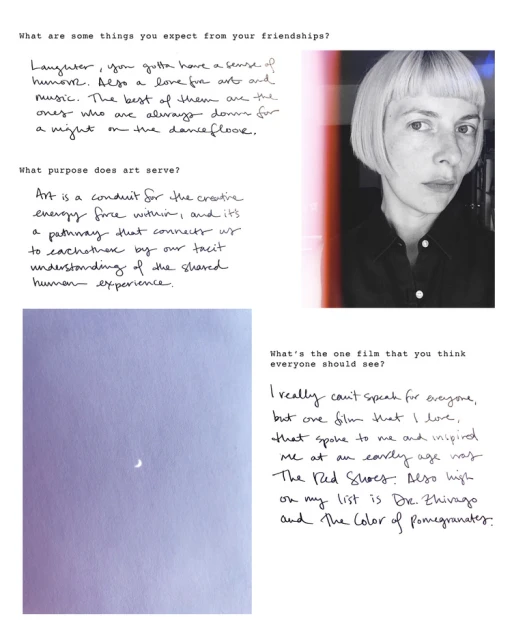 What are some things you expect from your friendships?
Laughter, you gotta have a sense of
humour. Also a love for art and
music. The best of them are the
ones who are always down for
a night on the dancefloor.
What purpose does art serve?
Art is a conduit for the creative
energy force within, and it's
a pathway that connects us
to eachother by our tacit
understanding of the shared
human experience.
What's the one film that you think
everyone should see?
I really can't speak for everyone,
but one film that I love,
that spoke to me and inspired
me at an early age was
The Red Shoes. Also high
on my list is Dr. Zhivago
and The Color of Pomegranates.